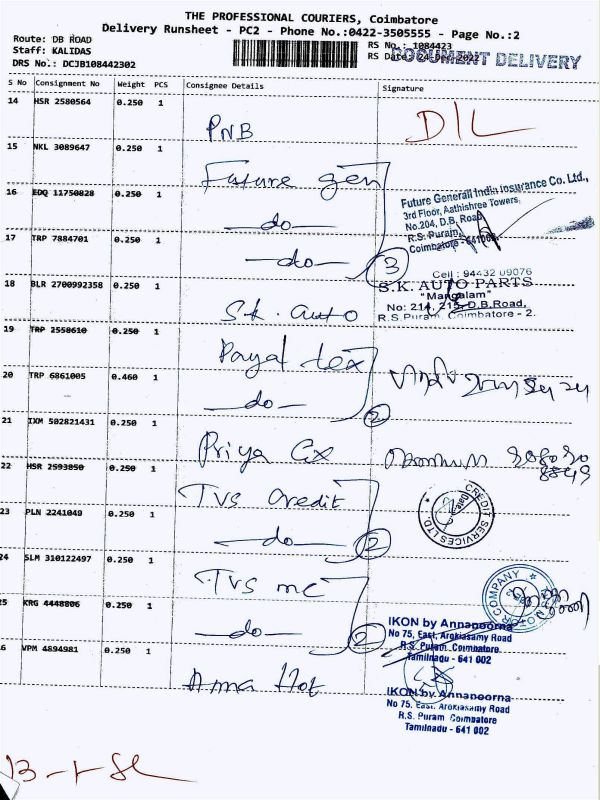 THE PROFESSIONAL COURIERS, Coimbatore
Delivery Runsheet - PC2 - Phone No.:0422-3505555 - Page No.:2
Route: DB ROAD
Staff: KALIDAS
DRS No.: DCJB108442302
RS No.: 1084423
RS Date: 24 Dec 2022
DOCUMENT DELIVERY
S No Consignment No Weight PCS Consignee Details Signature
14 HSR 2580564 0.250 1
PNB D/L
15 NKL 3089647 0.250 1
Future gen
16 EDQ 11750828 0.250 1
-do-
17 TRP 7884701 0.250 1
-do- 3
Future Generali India Insurance Co. Ltd.,
3rd Floor, Aathishree Towers,
No.204, D.B. Road,
R.S. Puram,
Coimbatore - 641002.
18 BLR 2700992358 0.250 1
S.K. Auto
Cell : 94432 09076
S.K. AUTO PARTS
"Mangalam"
No: 214, 215, D.B.Road,
R.S.Puram, Coimbatore - 2.
19 TRP 2558610 0.250 1
Payal tex
20 TRP 6861005 0.460 1
-do- 2
21 IXM 502821431 0.250 1
Priya Ex
22 HSR 2593850 0.250 1
TVS credit
23 PLN 2241049 0.250 1
-do- 2
CREDIT SERVICES LTD.
24 SLM 310122497 0.250 1
TVS mc
25 KRG 4448806 0.250 1
-do- 2
COMPANY
26 VPM 4894981 0.250 1
Anna Hot
IKON by Annapoorna
No 75, East, Arokiasamy Road
R.S. Puram, Coimbatore
Tamilnadu - 641 002
IKON by Annapoorna
No 75, East. Arokiasamy Road
R.S. Puram Coimbatore
Tamilnadu - 641 002